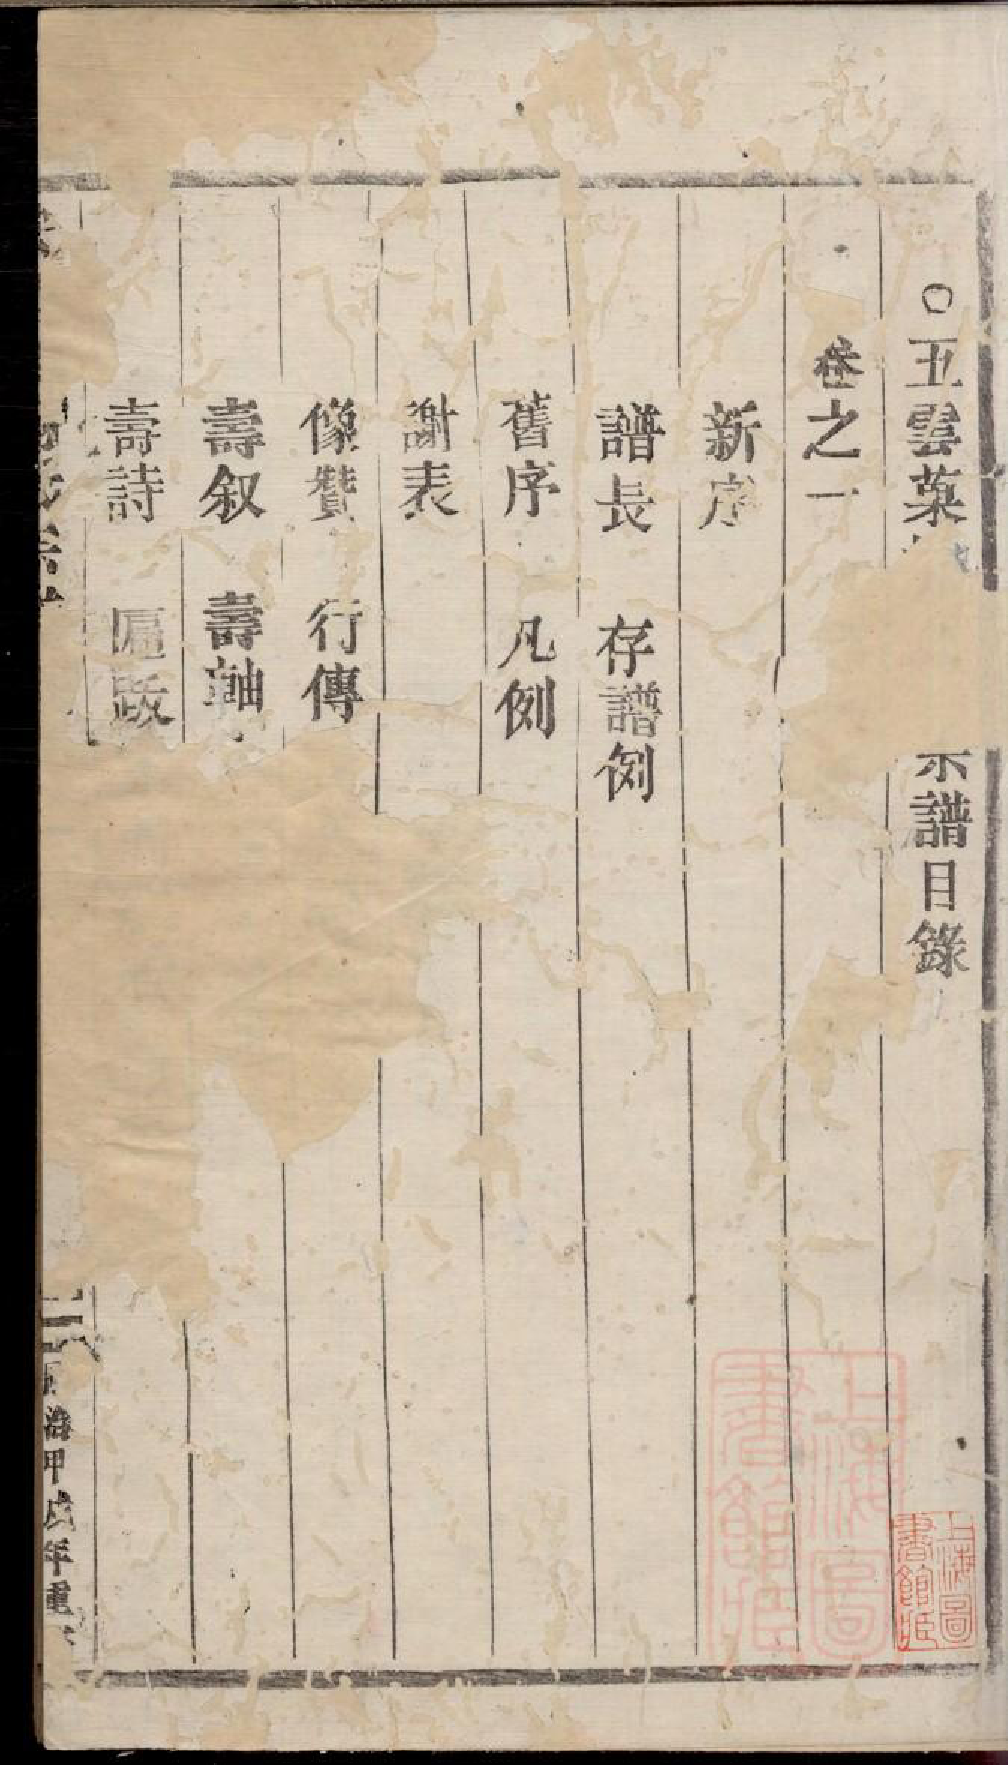 ○五雲葉宗譜目錄
卷之一
新序
譜長 存譜例
舊序 凡例
謝表
像贊 行傳
壽叙 壽軸
壽詩 匾跋
氏宗
治甲戌年重
上海圖書館藏
上海圖書館藏